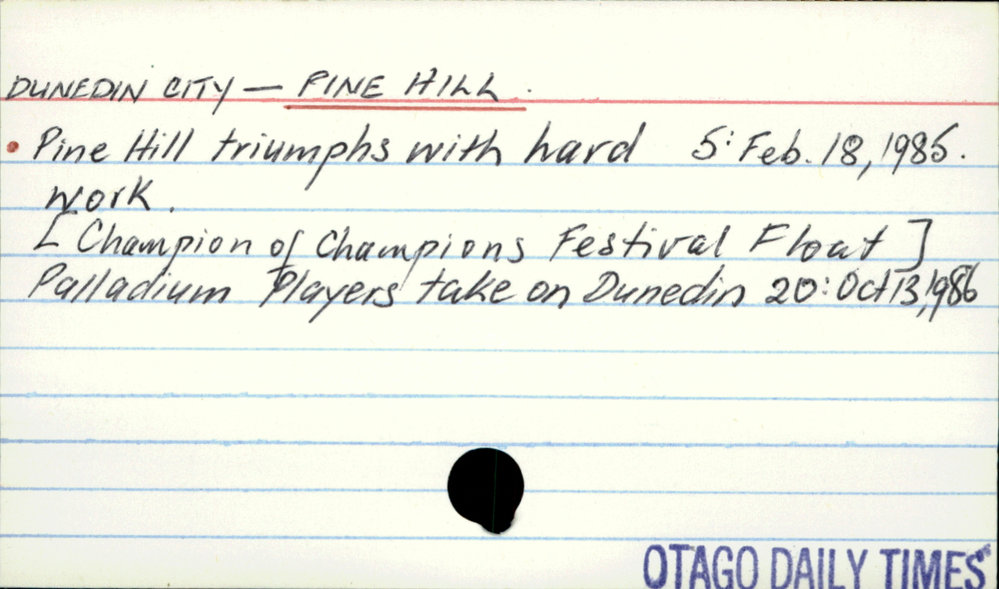 DUNEDIN CITY — PINE HILL.
• Pine Hill triumphs with hard 5: Feb. 18, 1985.
work.
[ Champion of Champions Festival Float ]
Palladium Players take on Dunedin 20: Oct 13, 1986
OTAGO DAILY TIMES